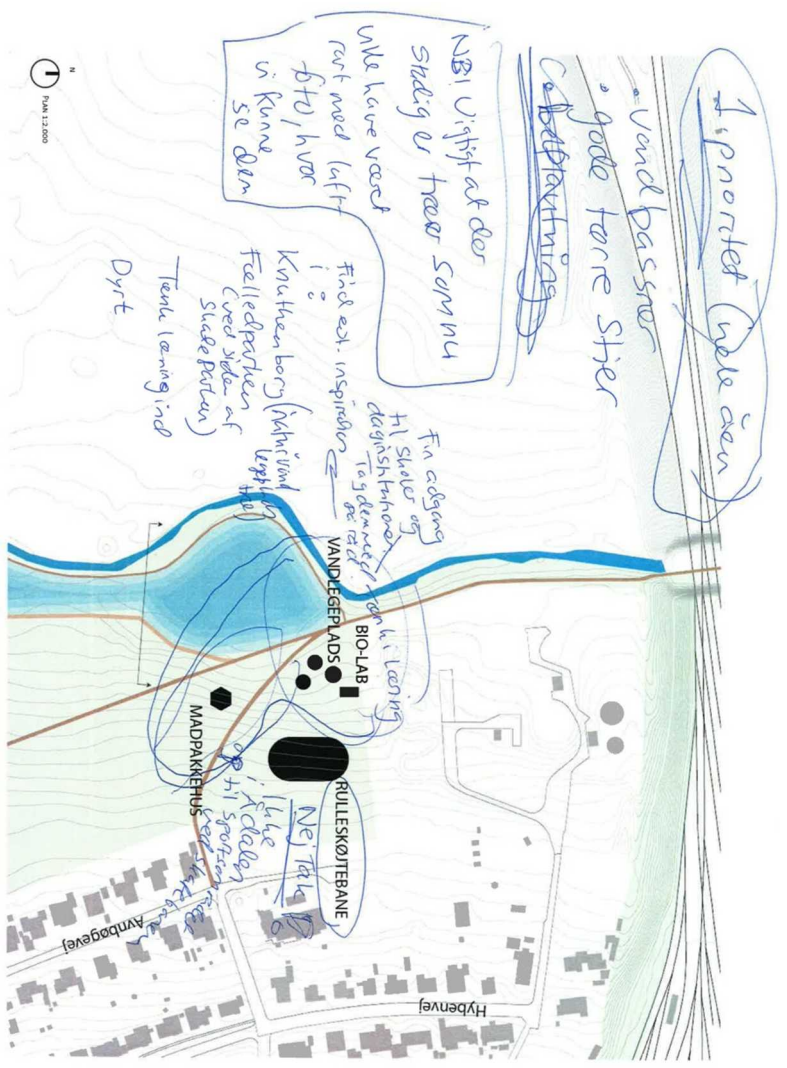 1. prioritet (hele åen)
• vandbassiner
• gode tørre stier
beplantning
NB! Vigtigt at der
stadig er træer som nu
ville have været
rart med luft-
foto, hvor
vi kunne
se dem
Find evt. inspiration
i:
Knuthenborg (natur/vand
legeplads
Fælledparken
(ved siden af
skateparken)
Tænk læring ind
Dyrt
Fin adgang
til skoler og
daginstitutioner
Tag dem med
på råd.
Tænk i læring
VANDLEGEPLADS
BIO-LAB
MADPAKKEHUS
RULLESKØJTEBANE
Nej Tak
Ikke
i Ådalen
op til sporten
ved
Avnbøgevej
Hybenvej
N
PLAN 1:2.000